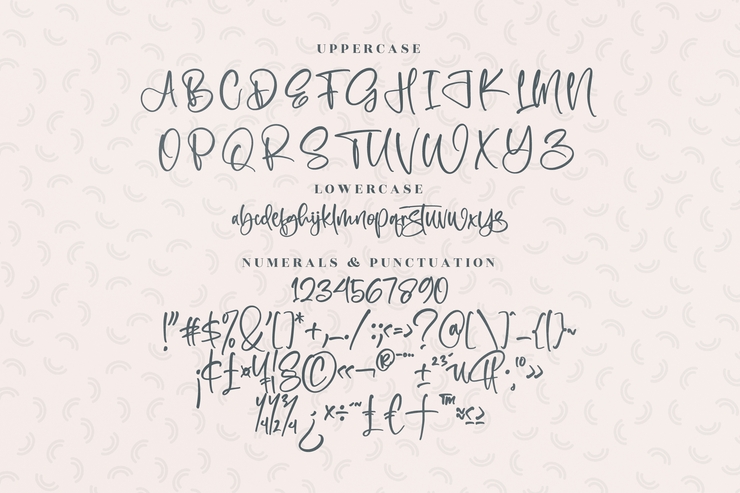 UPPERCASE
ABCDEFGHIJKLMN
OPQRSTUVWXYZ
LOWERCASE
abcdefghijklmnopqrstuvwxyz
NUMERALS & PUNCTUATION
1234567890
!"#$%&'()*+,-./:;<=>?@[\]^_{|}~
¡¢£¤¥¦§©«¬®¯°±²³´µ¶·¸¹º»
¼½¾¿×÷ˆ˜£€†™≈≤≥